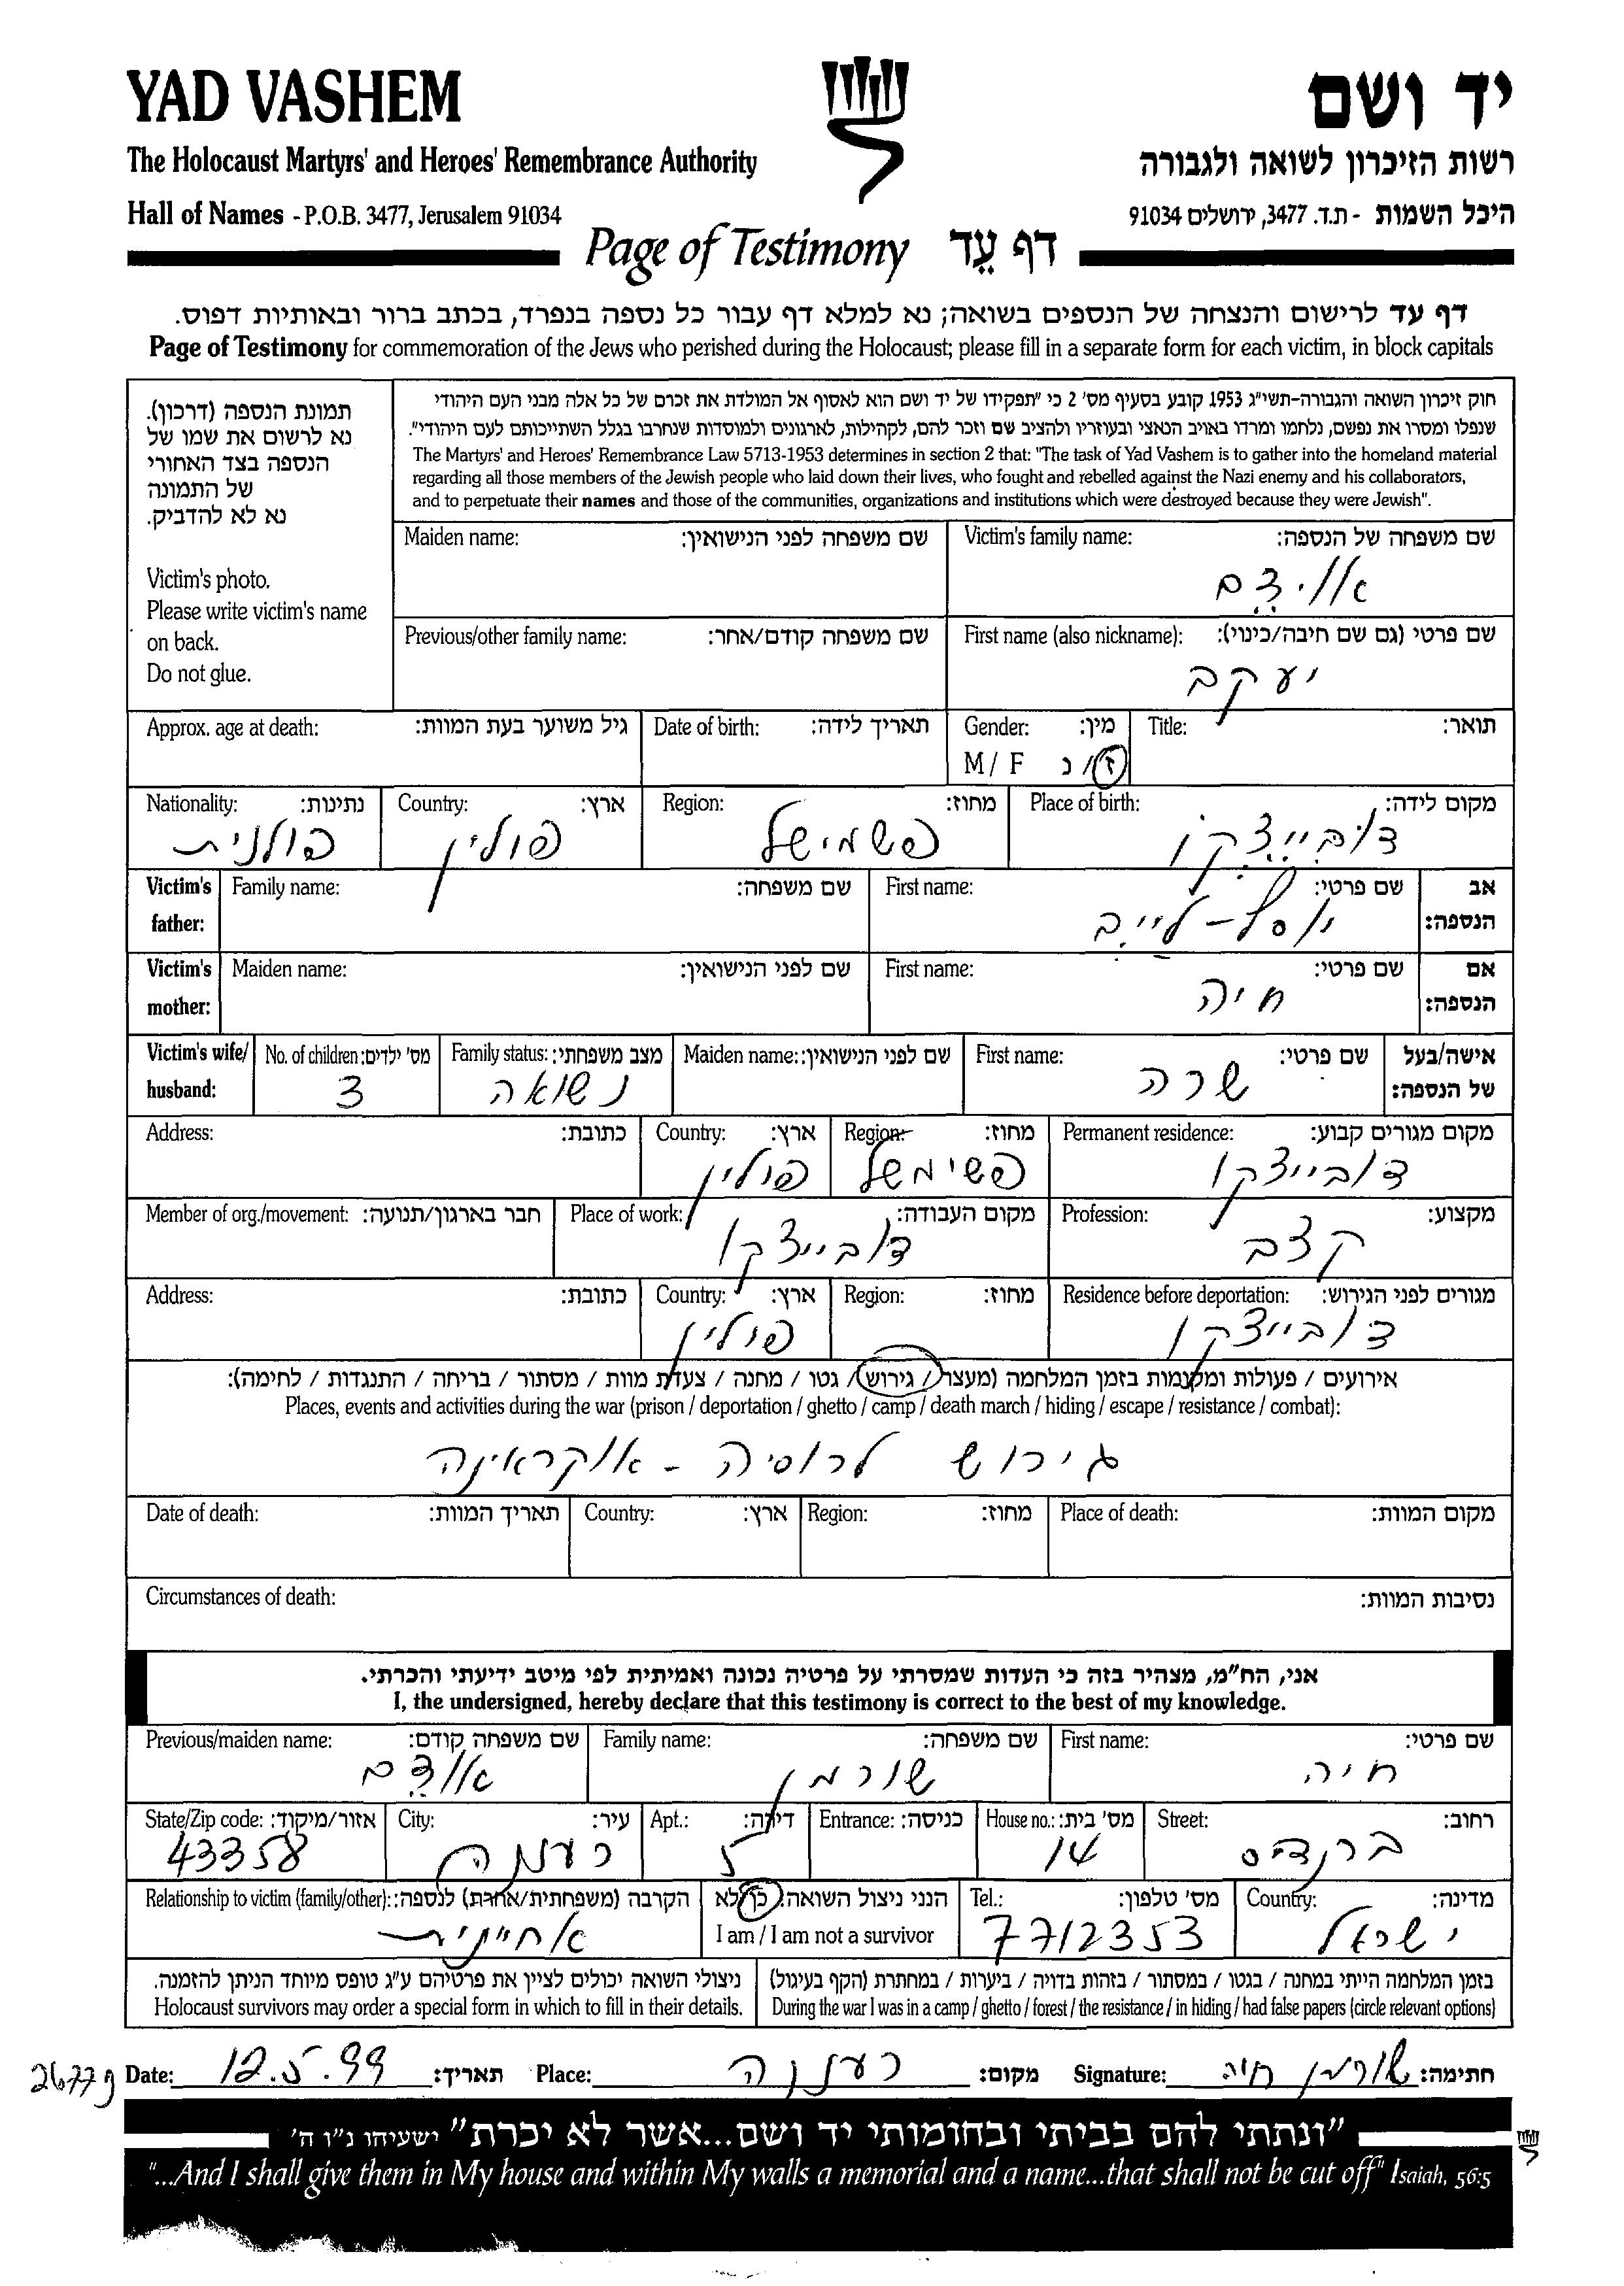 YAD VASHEM
יד ושם
The Holocaust Martyrs' and Heroes' Remembrance Authority
רשות הזיכרון לשואה ולגבורה
Hall of Names - P.O.B. 3477, Jerusalem 91034
היכל השמות - ת.ד. 3477, ירושלים 91034
Page of Testimony דף עֵד
דף עד לרישום והנצחה של הנספים בשואה; נא למלא דף עבור כל נספה בנפרד, בכתב ברור ובאותיות דפוס.
Page of Testimony for commemoration of the Jews who perished during the Holocaust; please fill in a separate form for each victim, in block capitals
תמונת הנספה (דרכון).
נא לרשום את שמו של
הנספה בצד האחורי
של התמונה
נא לא להדביק.
Victim's photo.
Please write victim's name
on back.
Do not glue.
חוק זיכרון השואה והגבורה-תשי"ג 1953 קובע בסעיף מס' 2 כי "תפקידו של יד ושם הוא לאסוף אל המולדת את זכרם של כל אלה מבני העם היהודי
שנפלו ומסרו את נפשם, נלחמו ומרדו באויב הנאצי ובעוזריו ולהציב שם וזכר להם, לקהילות, לארגונים ולמוסדות שנחרבו בגלל השתייכותם לעם היהודי".
The Martyrs' and Heroes' Remembrance Law 5713-1953 determines in section 2 that: "The task of Yad Vashem is to gather into the homeland material
regarding all those members of the Jewish people who laid down their lives, who fought and rebelled against the Nazi enemy and his collaborators,
and to perpetuate their names and those of the communities, organizations and institutions which were destroyed because they were Jewish".
Victim's family name: שם משפחה של הנספה:
Maiden name: שם משפחה לפני הנישואין:
First name (also nickname): שם פרטי (גם שם חיבה/כינוי):
יעקב
Previous/other family name: שם משפחה קודם/אחר:
Title: תואר:
Gender: מין:
M / F ז/נ
Date of birth: תאריך לידה:
Approx. age at death: גיל משוער בעת המוות:
Place of birth: מקום לידה:
דובייצקו
Region: מחוז:
פשמישל
Country: ארץ:
פולין
Nationality: נתינות:
פולנית
אב הנספה:
First name: שם פרטי:
יוסף-לייב
Family name: שם משפחה:
Victim's father:
אם הנספה:
First name: שם פרטי:
חיה
Maiden name: שם לפני הנישואין:
Victim's mother:
אישה/בעל של הנספה:
First name: שם פרטי:
שרה
Maiden name: שם לפני הנישואין:
Family status: מצב משפחתי:
נשואה
No. of children: מס' ילדים:
3
Victim's wife/ husband:
Permanent residence: מקום מגורים קבוע:
דובייצקו
Region: מחוז:
פשימשל
Country: ארץ:
פולין
Address: כתובת:
Profession: מקצוע:
קצב
Place of work: מקום העבודה:
דובייצקו
Member of org./movement: חבר בארגון/תנועה:
Residence before deportation: מגורים לפני הגירוש:
דובייצקו
Region: מחוז:
Country: ארץ:
פולין
Address: כתובת:
אירועים / פעולות ומקומות בזמן המלחמה (מעצר / גירוש / גטו / מחנה / צעדת מוות / מסתור / בריחה / התנגדות / לחימה):
Places, events and activities during the war (prison / deportation / ghetto / camp / death march / hiding / escape / resistance / combat):
גירוש לרוסיה - אוקראינה
Place of death: מקום המוות:
Region: מחוז:
Country: ארץ:
Date of death: תאריך המוות:
Circumstances of death: נסיבות המוות:
אני, הח"מ, מצהיר בזה כי העדות שמסרתי על פרטיה נכונה ואמיתית לפי מיטב ידיעתי והכרתי.
I, the undersigned, hereby declare that this testimony is correct to the best of my knowledge.
First name: שם פרטי:
חיה
Family name: שם משפחה:
שורמן
Previous/maiden name: שם משפחה קודם:
Street: רחוב:
ברנדיס
House no.: מס' בית:
14
Entrance: כניסה:
Apt.: דירה:
5
City: עיר:
רעננה
State/Zip code: אזור/מיקוד:
43358
Country: מדינה:
ישראל
Tel.: מס' טלפון:
7712353
הנני ניצול השואה: כן/לא
I am / I am not a survivor
Relationship to victim (family/other): הקרבה (משפחתית/אחרת) לנספה:
אחיינית
בזמן המלחמה הייתי במחנה / בגטו / במסתור / בזהות בדויה / ביערות / במחתרת (הקף בעיגול)
During the war I was in a camp / ghetto / forest / the resistance / in hiding / had false papers (circle relevant options)
ניצולי השואה יכולים לציין את פרטיהם ע"ג טופס מיוחד הניתן להזמנה.
Holocaust survivors may order a special form in which to fill in their details.
Date: 12.5.99 תאריך: Place: רעננה מקום: Signature: שורמן חיה חתימה:
"ונתתי להם בביתי ובחומותי יד ושם...אשר לא יכרת" ישעיהו נ"ו ה'
"...And I shall give them in My house and within My walls a memorial and a name...that shall not be cut off" Isaiah, 56:5